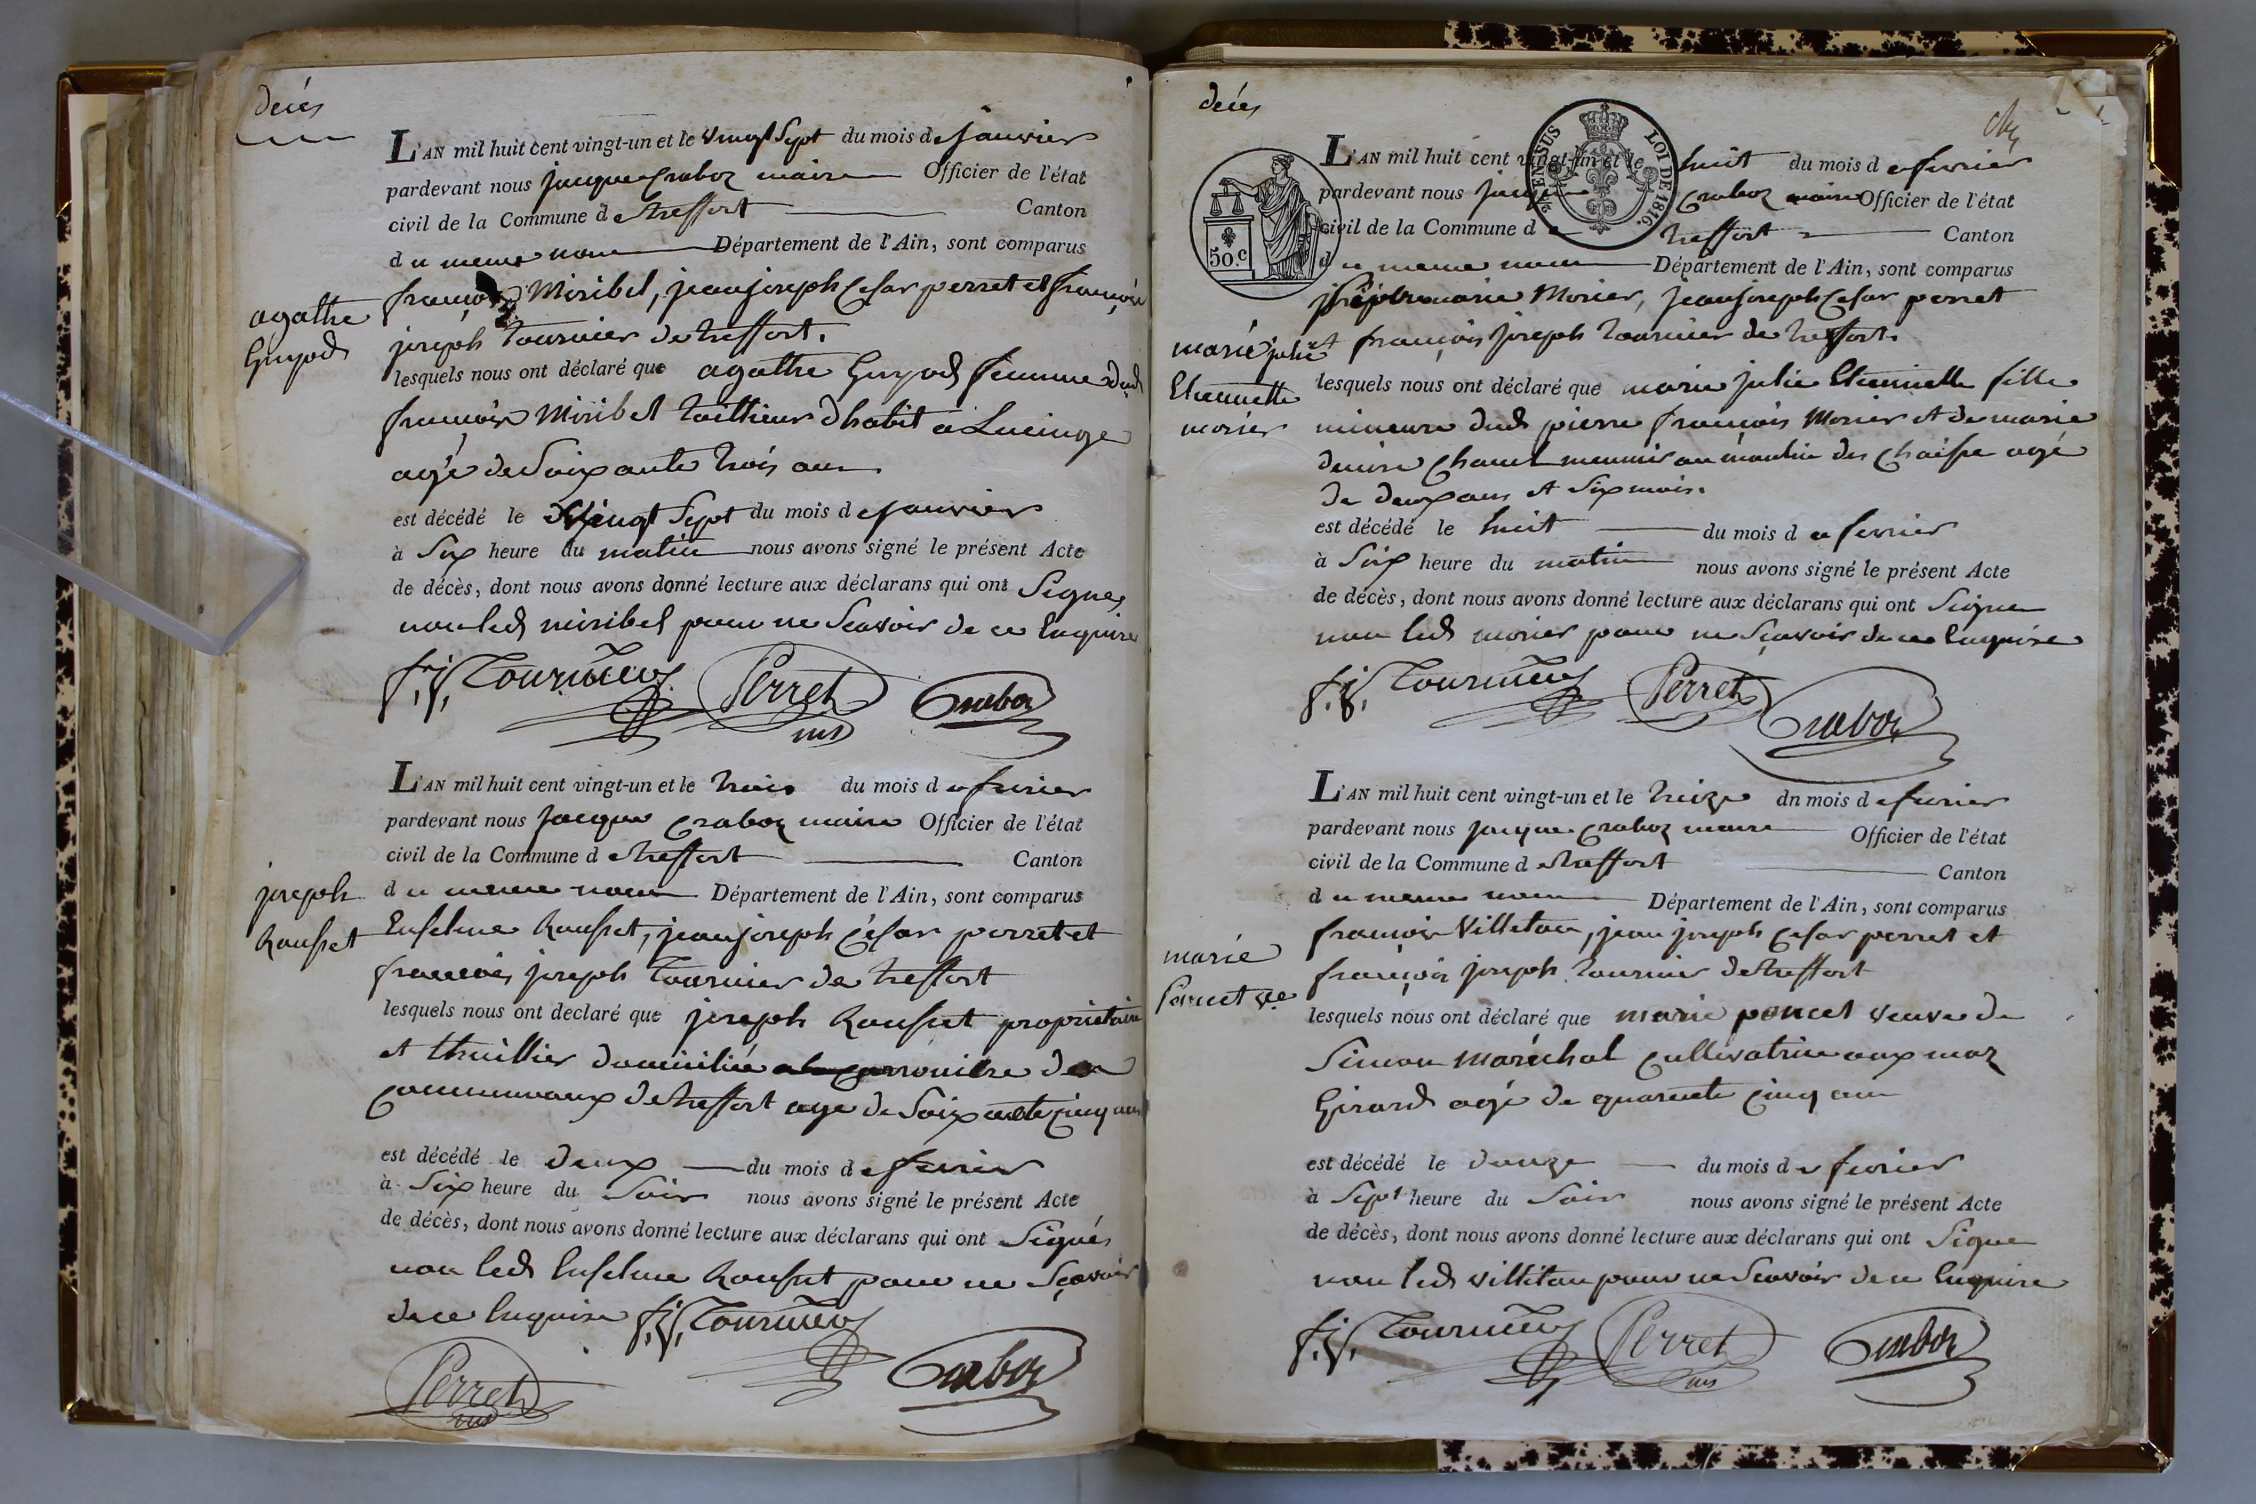 decés
L'AN mil huit cent vingt-un et le vingt Sept du mois de janvier
pardevant nous jacque Craboz maire Officier de l'état
civil de la Commune de treffort Canton
du meme nom Département de l'Ain, sont comparus
françois Miribel, jean joseph Cesar perret et françois
joseph tournier de treffort.
agathe
Guyod
lesquels nous ont déclaré que agathe Guyod femme dud
françois Miribel taillieur dhabit a Lucinge
agé de Soixante trois ans
est décédé le vingt Sept du mois de janvier
à Six heure du matin nous avons signé le présent Acte
de décès, dont nous avons donné lecture aux déclarans qui ont Signes
non led miribel pour ne Scavoir de ce Enquire
f. j. Tournier Perret Craboz
L'AN mil huit cent vingt-un et le trois du mois de fevrier
pardevant nous jacque Craboz maire Officier de l'état
civil de la Commune de treffort Canton
du meme nom Département de l'Ain, sont comparus
joseph
Rousset
Enselme Rousset, jean joseph César perret et
françois joseph tournier de treffort
lesquels nous ont declaré que joseph Rousset proprietaire
et thuillier domicilié a la carroniere des
communaux de treffort age de Soixante cinq ans
est décédé le deux du mois de fevrier
à Six heure du Soir nous avons signé le présent Acte
de décès, dont nous avons donné lecture aux déclarans qui ont Signés
non led Enselme Rousset pour ne Sçavoir
de ce Enquire f. j. Tournier
Perret Craboz
decés
2 EN SUS LOI DE 1816.
50.c
L'AN mil huit cent vingt-un et le huit du mois de fevrier
pardevant nous jacque Craboz maire Officier de l'état
civil de la Commune de treffort Canton
du meme nom Département de l'Ain, sont comparus
joseph marie Morier, jean joseph Cesar perret
et françois joseph tournier de treffort.
marie julie
Etiennette
morier
lesquels nous ont déclaré que marie julie Etiennette fille
mineure dud pierre françois Morier et de marie
denise meunier au moulin des agé
de deux ans et Six mois.
est décédé le huit du mois de fevrier
à Six heure du matin nous avons signé le présent Acte
de décès, dont nous avons donné lecture aux déclarans qui ont Signe
non led morier pour ne Sçavoir de ce Enquire
f. j. Tournier Perret Craboz
L'AN mil huit cent vingt-un et le treize dn mois de fevrier
pardevant nous jacque Craboz maire Officier de l'état
civil de la Commune de treffort Canton
du meme nom Département de l'Ain, sont comparus
françois Villetan, jean joseph Cesar perret et
françois joseph tournier de treffort
marie
Poncet ve
lesquels nous ont déclaré que marie poncet veuve de
Simon Maréchal cultivatrice aux maz
Girard agé de quarante cinq ans
est décédé le douze du mois de fevrier
à Sept heure du Soir nous avons signé le présent Acte
de décès, dont nous avons donné lecture aux déclarans qui ont Signe
non led villetan pour ne Scavoir de ce Enquire
f. j. Tournier Perret Craboz